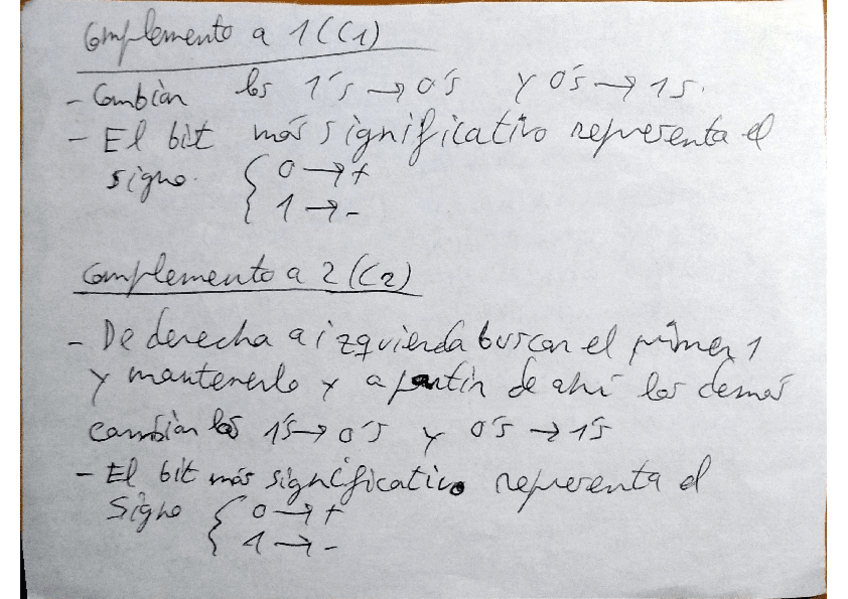 Complemento a 1 (C1)
- Cambian los 1's → 0's y 0's → 1s.
- El bit más significativo representa el
signo. { 0 → +
1 → -
Complemento a 2 (C2)
- De derecha a izquierda buscar el primer 1
y mantenerlo y a partir de ahí los demás
cambian los 1's → 0's y 0's → 1's
- El bit más significativo representa el
Signo { 0 → +
1 → -